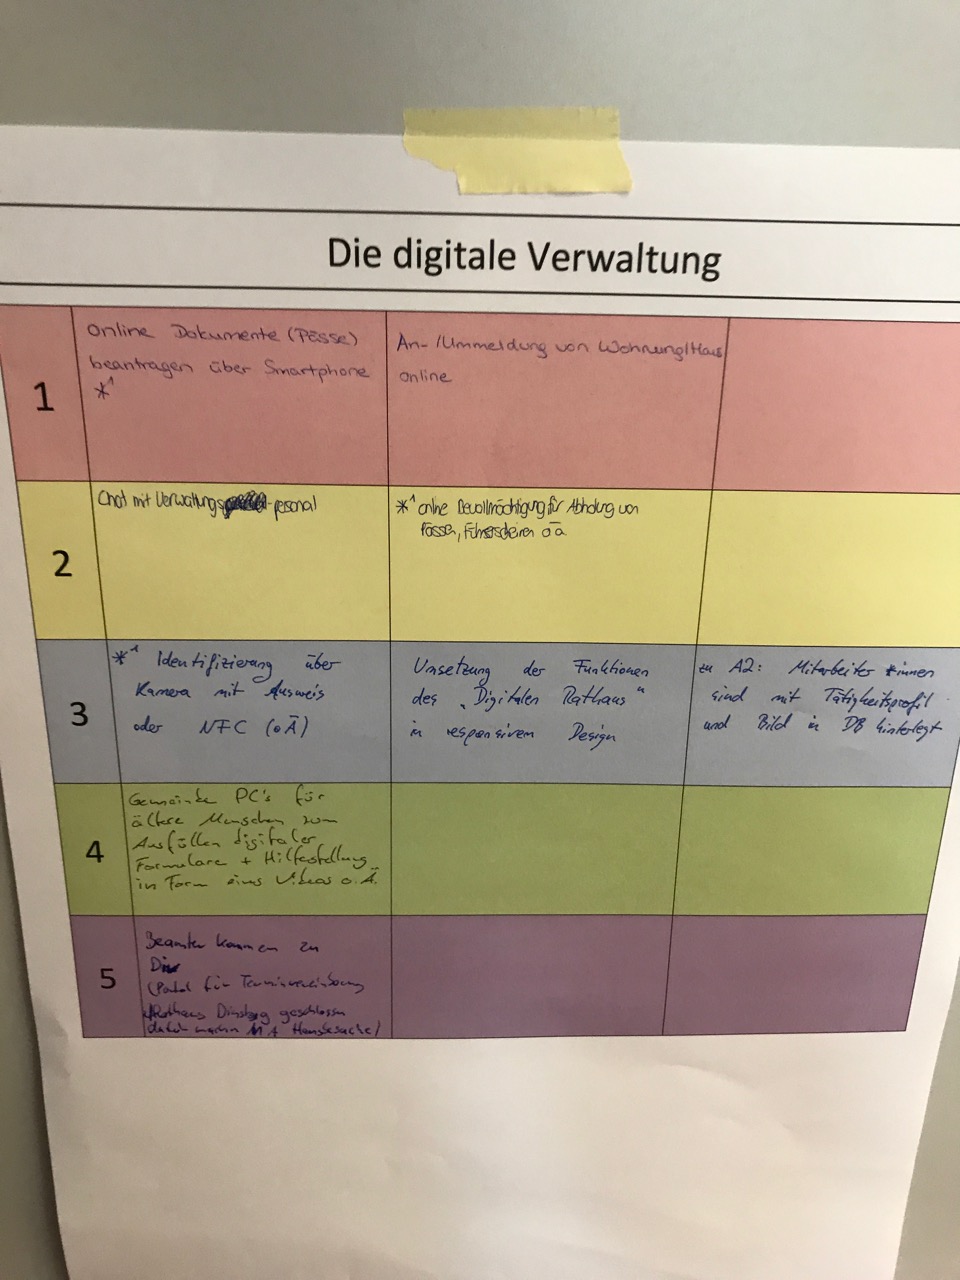 Die digitale Verwaltung
1
Online Dokumente (Pässe)
beantragen über Smartphone
*1
An- /Ummeldung von Wohnung/Haus
online
2
Chat mit Verwaltungs -personal
*1 online Bevollmächtigung für Abholung von
Pässen, Führerscheinen o.ä.
3
*1 Identifizierung über
Kamera mit Ausweis
oder NFC (oÄ)
Umsetzung der Funktionen
des „Digitalen Rathaus“
in responsivem Design
zu A2: Mitarbeiter*innen
sind mit Tätigkeitsprofil
und Bild in DB hinterlegt
4
Gemeinde PC's für
ältere Menschen zum
Ausfüllen digitaler
Formulare + Hilfestellung
in Form eines Videos o.Ä.
5
Beamten kommen zu
Dir
(Portal für Terminvereinbarung
Rathaus Dinsberg geschlossen
dafür machen MA Hausbesuche)